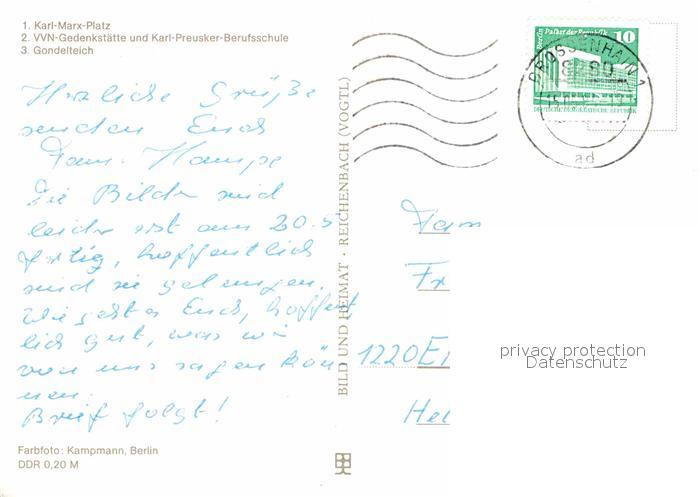 1. Karl-Marx-Platz
2. VVN-Gedenkstätte und Karl-Preusker-Berufsschule
3. Gondelteich
Herzliche Grüße
senden Euch
Fam. Hampe
Die Bilder sind
leider erst am 20.5
fertig, hoffentlich
sind sie gelungen.
Wie geht es Euch, hoffent
lich gut, was wir
von uns sagen kön
nen.
Brief folgt!
Farbfoto: Kampmann, Berlin
DDR 0,20 M
BILD UND HEIMAT · REICHENBACH (VOGTL)
Berlin Palast der Republik 10
DEUTSCHE DEMOKRATISCHE REPUBLIK
GROSSENHAIN 1
ad
Fam
Fr
1220 Ei
Hei
privacy protection
Datenschutz